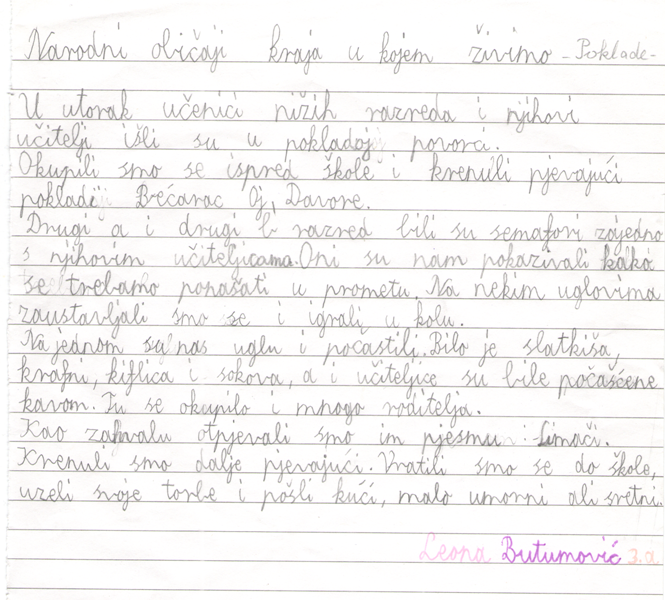 Narodni običaji kraja u kojem živimo - Poklade -
U utorak učenici nižih razreda i njihovi
učitelji išli su u pokladoj povorci.
Okupili smo se ispred škole i krenuli pjevajući
pokladi Bećarac Oj, Davore.
Drugi a i drugi b razred bili su semafori zajedno
s njihovim učiteljicama. Oni su nam pokazivali kako
se trebamo ponašati u prometu. Na nekim uglovima
zaustavljali smo se i igrali u kolu.
Na jednom su nas uglu i počastili. Bilo je slatkiša,
krafni, kiflica i sokova, a i učiteljice su bile počašćene
kavom. Tu se okupilo i mnogo roditelja.
Kao zahvalu otpjevali smo im pjesmu: Limači.
Krenuli smo dalje pjevajući. Vratili smo se do škole,
uzeli svoje torbe i pošli kući, malo umorni ali sretni.
Leona Butumović 3.a